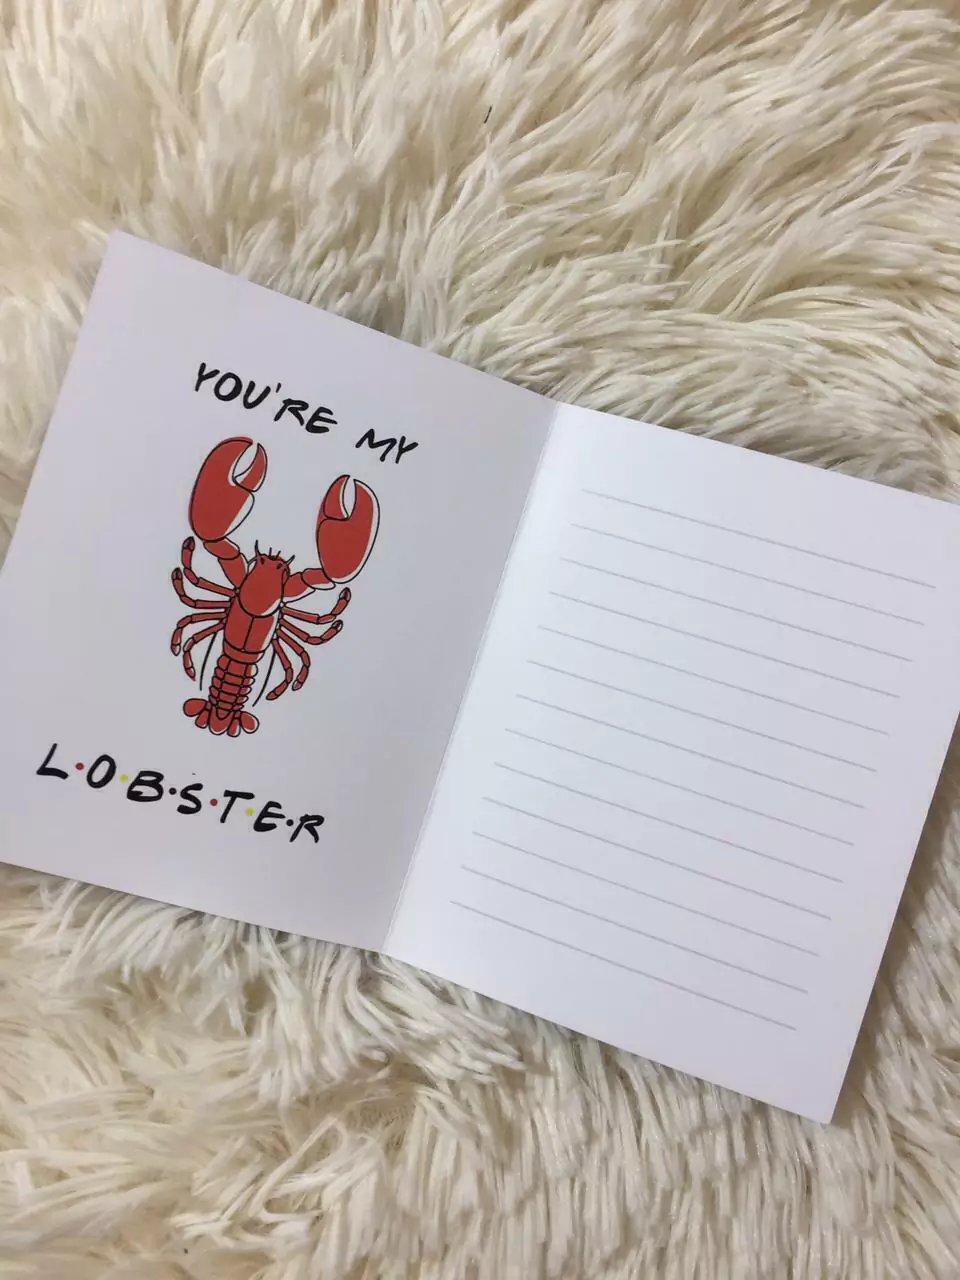 YOU'RE MY
L·O·B·S·T·E·R